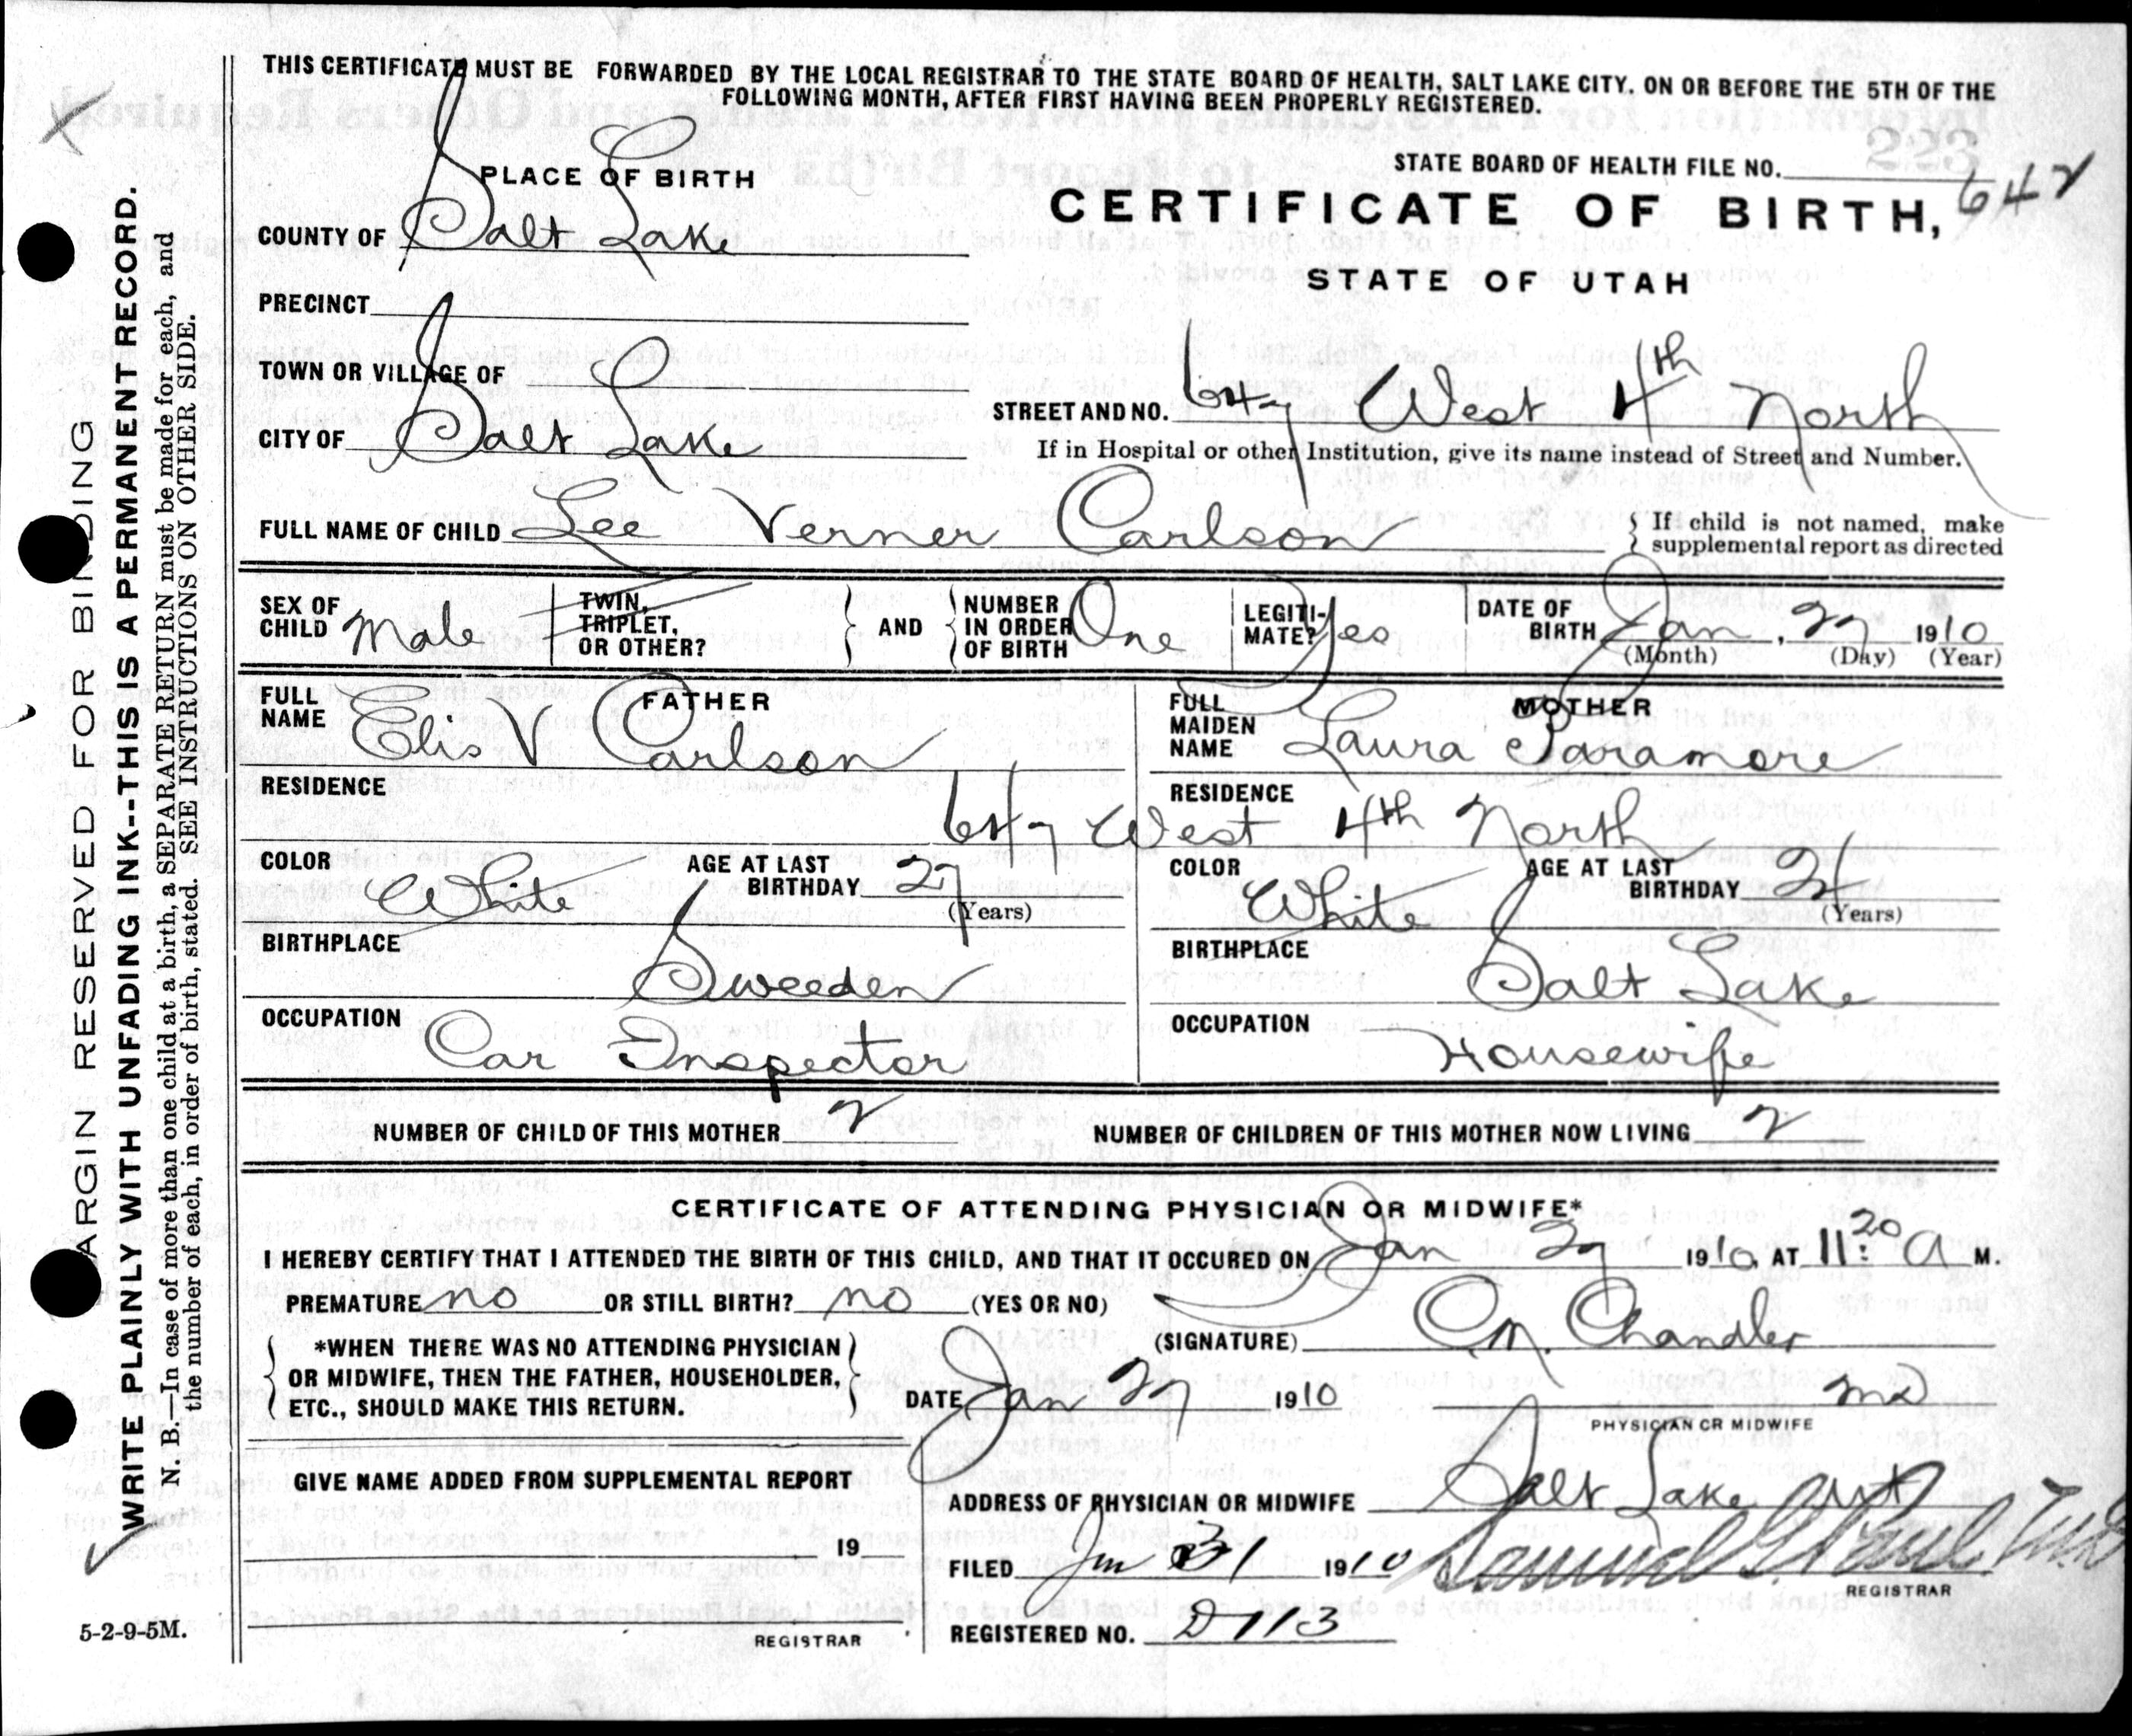 THIS CERTIFICATE MUST BE FORWARDED BY THE LOCAL REGISTRAR TO THE STATE BOARD OF HEALTH, SALT LAKE CITY. ON OR BEFORE THE 5TH OF THE
FOLLOWING MONTH, AFTER FIRST HAVING BEEN PROPERLY REGISTERED.
PLACE OF BIRTH
STATE BOARD OF HEALTH FILE NO. 642
223
CERTIFICATE OF BIRTH,
STATE OF UTAH
COUNTY OF Salt Lake
PRECINCT
TOWN OR VILLAGE OF
CITY OF Salt Lake
STREET AND NO. 647 West 4th North
If in Hospital or other Institution, give its name instead of Street and Number.
FULL NAME OF CHILD Lee Verner Carlson
If child is not named, make
supplemental report as directed
SEX OF CHILD Male
TWIN, TRIPLET, OR OTHER?
AND
NUMBER IN ORDER OF BIRTH One
LEGITI- MATE? Yes
DATE OF BIRTH Jan, 27 1910
(Month) (Day) (Year)
FATHER
FULL NAME Elis V Carlson
MOTHER
FULL MAIDEN NAME Laura Paramore
RESIDENCE
RESIDENCE
647 West 4th North
COLOR White
AGE AT LAST BIRTHDAY 27
(Years)
COLOR White
AGE AT LAST BIRTHDAY 21
(Years)
BIRTHPLACE Sweeden
BIRTHPLACE Salt Lake
OCCUPATION Car Inspector
OCCUPATION Housewife
NUMBER OF CHILD OF THIS MOTHER 2
NUMBER OF CHILDREN OF THIS MOTHER NOW LIVING 2
CERTIFICATE OF ATTENDING PHYSICIAN OR MIDWIFE*
I HEREBY CERTIFY THAT I ATTENDED THE BIRTH OF THIS CHILD, AND THAT IT OCCURED ON Jan 27 1910, AT 11:20 A M.
PREMATURE no OR STILL BIRTH? no (YES OR NO)
(SIGNATURE) C. M. Chandler
*WHEN THERE WAS NO ATTENDING PHYSICIAN
OR MIDWIFE, THEN THE FATHER, HOUSEHOLDER,
ETC., SHOULD MAKE THIS RETURN.
DATE Jan 27 1910
MD
PHYSICIAN OR MIDWIFE
GIVE NAME ADDED FROM SUPPLEMENTAL REPORT
ADDRESS OF PHYSICIAN OR MIDWIFE Salt Lake
19
FILED Jan 31 1910
REGISTRAR
REGISTRAR
REGISTERED NO. D 113
5-2-9-5M.
MARGIN RESERVED FOR BINDING
WRITE PLAINLY WITH UNFADING INK--THIS IS A PERMANENT RECORD.
N. B.--In case of more than one child at a birth, a SEPARATE RETURN must be made for each, and
the number of each, in order of birth, stated. SEE INSTRUCTIONS ON OTHER SIDE.